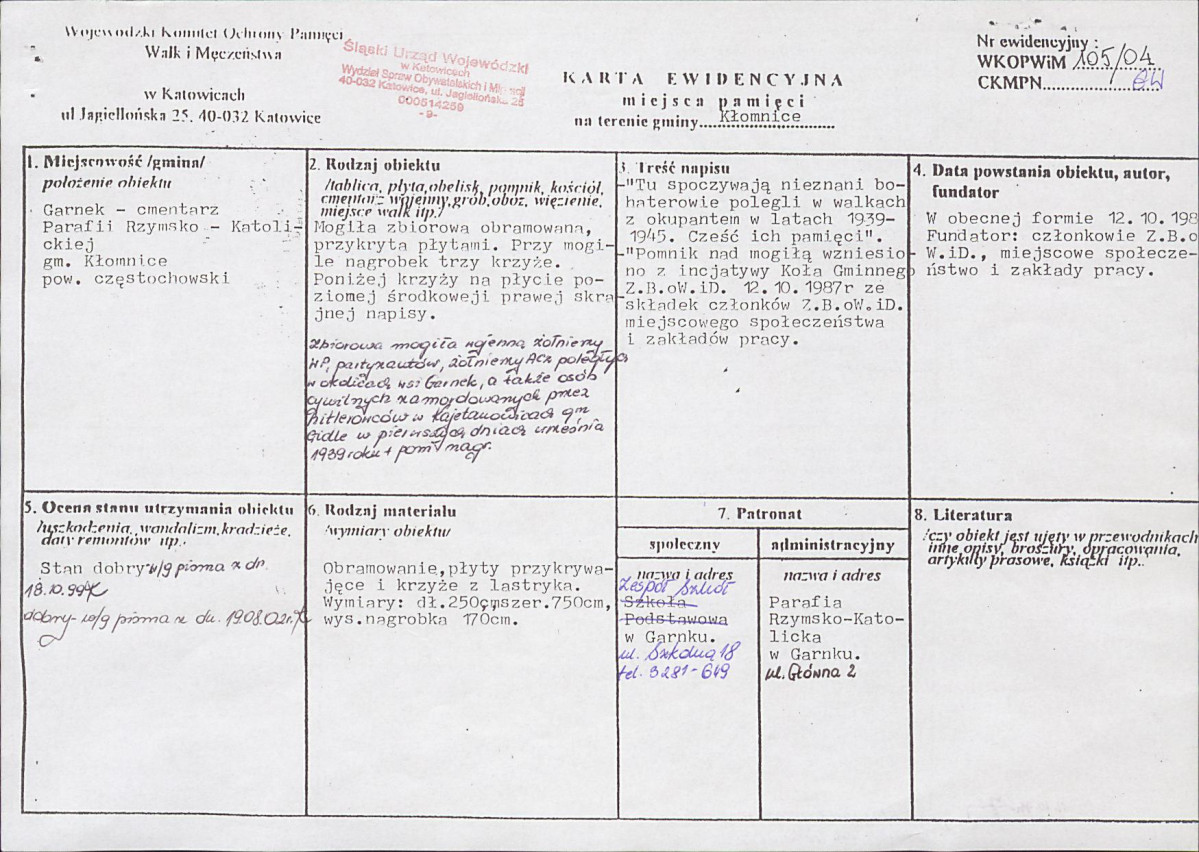 Wojewódzki Komitet Ochrony Pamięci
Walk i Męczeństwa
w Katowicach
ul Jagiellońska 25, 40-032 Katowice
Śląski Urząd Wojewódzki
w Katowicach
Wydział Spraw Obywatelskich i
40-032 Katowice, ul. Jagiellońska 25
000514259
-9-
KARTA EWIDENCYJNA
miejsca pamięci
na terenie gminy....Kłomnice
Nr ewidencyjny :
WKOPWiM 105/04
CKMPN
1. Miejscowość /gmina/
położenie obiektu
Garnek - cmentarz
Parafii Rzymsko - Katoli-
ckiej
gm. Kłomnice
pow. częstochowski
2. Rodzaj obiektu
/tablica, płyta, obelisk, pomnik, kościół,
cmentarz wojenny, grób, obóz, więzienie,
miejsce walk itp./
Mogiła zbiorowa obramowana,
przykryta płytami. Przy mogi-
le nagrobek trzy krzyże.
Poniżej krzyży na płycie po-
ziomej środkoweji prawej skra
jnej napisy.
Zbiorowa mogiła wojenna żołnierzy
WP, partyzantów, żołnierzy ACz poległych
w okolicach wsi Garnek, a także osób
cywilnych zamordowanych przez
hitlerowców w Kajetanowicach gm
Gidle w pierwszych dniach września
1939 roku + pom. nagr.
3. Treść napisu
-"Tu spoczywają nieznani bo-
haterowie polegli w walkach
z okupantem w latach 1939-
1945. Cześć ich pamięci".
-"Pomnik nad mogiłą wzniesio-
no z incjatywy Koła Gminnego
Z.B.oW.iD. 12.10.1987r ze
składek członków Z.B.oW.iD.
miejscowego społeczeństwa
i zakładów pracy.
4. Data powstania obiektu, autor,
fundator
W obecnej formie 12.10.198
Fundator: członkowie Z.B.o
W.iD., miejscowe społecze-
ństwo i zakłady pracy.
5. Ocena stanu utrzymania obiektu
/uszkodzenia, wandalizm, kradzieże,
daty remontów itp..
Stan dobry w/g pisma z dn.
18.10.99r
dobry - w/g pisma z dn. 19.08.02r.
6. Rodzaj materiału
/wymiary obiektu/
Obramowanie,płyty przykrywa-
jęce i krzyże z lastryka.
Wymiary: dł.250cm,szer.750cm,
wys.nagrobka 170cm.
7. Patronat
społeczny
nazwa i adres
Zespół Szkół
Szkoła
Podstawowa
w Garnku.
ul. Szkolna 18
tel. 3281-649
administracyjny
nazwa i adres
Parafia
Rzymsko-Kato-
licka
w Garnku.
ul. Główna 2
8. Literatura
/czy obiekt jest ujęty w przewodnikach
inne opisy, broszury, opracowania,
artykuły prasowe, książki itp..